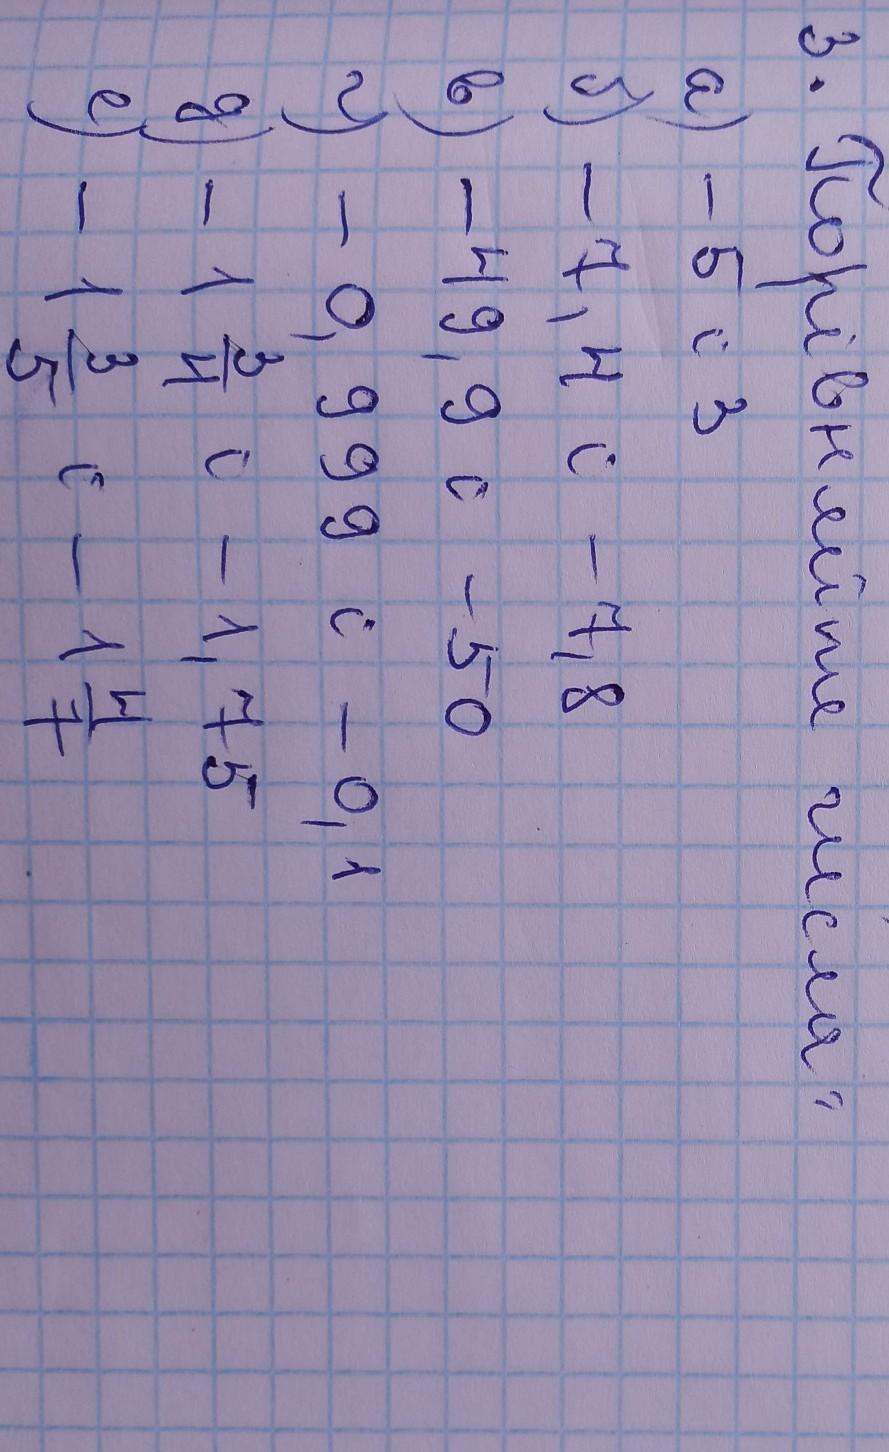 3. Порівняйте числа:
а) - 5 і 3
б) - 7,4 і - 7,8
в) - 49,9 і - 50
г) - 0,999 і - 0,1
д) - 1 3/4 і - 1,75
е) - 1 3/5 і - 1 4/7